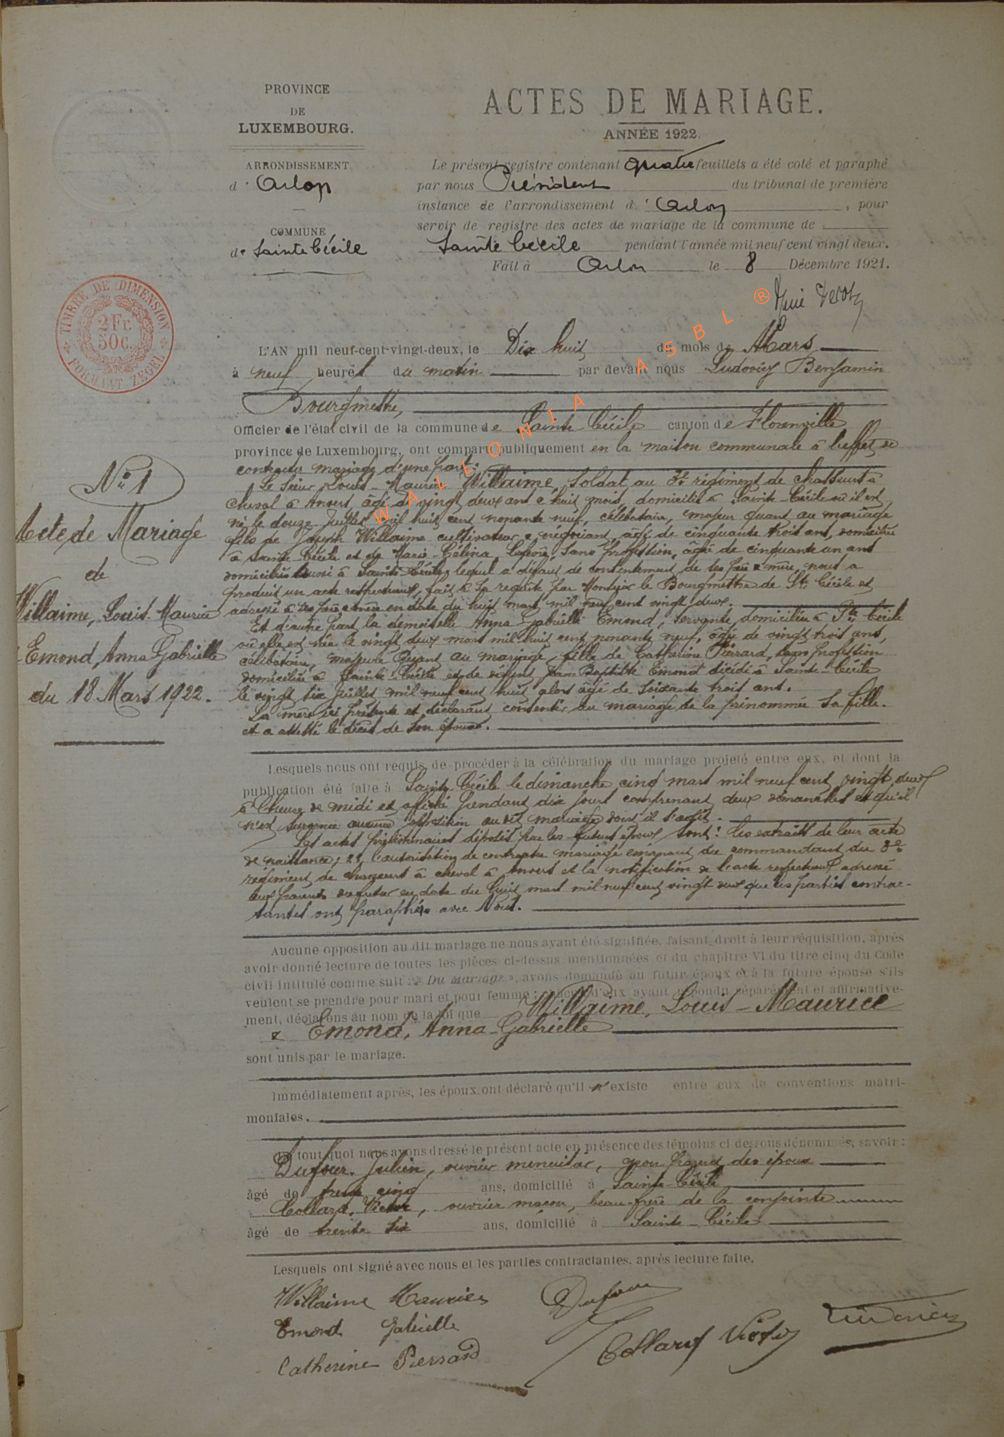 PROVINCE
DE
LUXEMBOURG.
ARRONDISSEMENT
d'Arlon
COMMUNE
de Sainte Cécile
ACTES DE MARIAGE.
ANNÉE 1922.
Le présent registre contenant quatre feuillets a été coté et paraphé
par nous Président du tribunal de première
instance de l'arrondissement d'Arlon, pour
servir de registre des actes de mariage de la commune de
Sainte Cécile pendant l'année mil neuf cent vingt deux.
Fait à Arlon le 8 Décembre 1921.
TIMBRE DE DIMENSION
2 Fr.
50c.
FORMAAT ZEGEL
WALLONIA ASBL ®
L'AN mil neuf-cent-vingt-deux, le Dix huit du mois de Mars
à neuf heures du matin par devant nous Ludovicy Benjamin
Bourgmestre,
Officier de l'état civil de la commune de Sainte Cécile canton de Florenville
province de Luxembourg, ont comparu publiquement en la maison communale à l'effet de
contracter mariage d'une part:
Le Sieur Louis-Maurice Willaime, Soldat au 3e régiment de chasseurs à
cheval à Anvers, âgé de vingt deux ans & huit mois, domicilié à Sainte Cécile où il est
né le douze juillet mil huit cent nonante neuf, célibataire, majeur quant au mariage
fils de Joseph Willaime cultivateur & négociant, âgé de cinquante trois ans, domicilié
à Sainte Cécile et de Marie-Célina, sans profession, âgée de cinquante un ans
domiciliée aussi à Sainte Cécile, lequel a défaut de consentement de ses père & mère, nous a
produit un acte respectueux, fait à sa requête par Monsieur le Bourgmestre de Ste Cécile et
adressé à ses père & mère en date du huit mars mil neuf cent vingt deux.
Et d'autre part la demoiselle Anna Gabrielle Emond, servante, domiciliée à Ste Cécile
où elle est née le vingt deux mars mil huit cent nonante neuf, âgée de vingt trois ans,
célibataire, majeure quant au mariage, fille de Catherine Piersard, sans profession
domiciliée à Sainte Cécile et de défunt Jean Baptiste Emond décédé à Sainte-Cécile
le vingt six juillet mil neuf cent huit alors âgé de soixante trois ans.
La mère ici présente et déclarant consentir au mariage de la prénommée sa fille.
et a attesté le décès de son époux.
Nº 1
Acte de Mariage
de
Willaime, Louis-Maurice
Emond, Anna Gabrielle
du 18 Mars 1922.
Lesquels nous ont requis de procéder à la célébration du mariage projeté entre eux, et dont la
publication été faite à Sainte-Cécile le dimanche cinq mars mil neuf cent vingt deux
à l'heure de midi et affiché pendant dix jours comprenant deux dimanches et qu'il
n'est survenue aucune opposition au dit mariage dont il s'agit.
Les actes préliminaires déposés par les futurs époux sont: les extraits de leur acte
de naissance; 2º l'autorisation de contracter mariage émanant du commandant du 3e
régiment de chasseurs à cheval à Anvers et la notification de l'acte respectueux adressé
aux parents du futur en date du huit mars mil neuf cent vingt deux que les parties contrac-
tantes ont paraphés avec Nous.
Aucune opposition au dit mariage ne nous ayant été signifiée, faisant droit à leur réquisition, après
avoir donné lecture de toutes les pièces ci-dessus mentionnées et du chapitre VI du titre cinq du Code
civil intitulé comme suit: « Du Mariage », avons demandé au futur époux et à la future épouse s'ils
veulent se prendre pour mari et pour femme: chacun d'eux ayant répondu séparément et affirmative-
ment, déclarons au nom de la loi que Willaime, Louis-Maurice
& Emond, Anna-Gabrielle
sont unis par le mariage.
Immédiatement après, les époux ont déclaré qu'il n'existe entre eux de conventions matri-
moniales.
De tout quoi nous avons dressé le présent acte en présence des témoins ci dessous dénommés, savoir:
Dufour, Julien, ouvrier menuisier, des époux
âgé de trente cinq ans, domicilié à Sainte-Cécile
Collard, Victor, ouvrier maçon, beau-frère de la conjointe
âgé de trente six ans, domicilié à Sainte-Cécile
Lesquels ont signé avec nous et les parties contractantes, après lecture faite.
Willaime Maurice
Dufour
Emond Gabrielle
Collard Victor
Ludovicy
Catherine Piersard